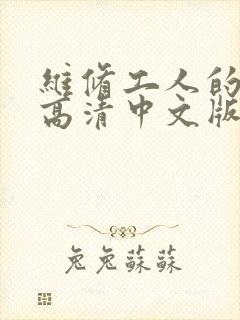 維修工人的
高清中文版
兔兔蘇蘇